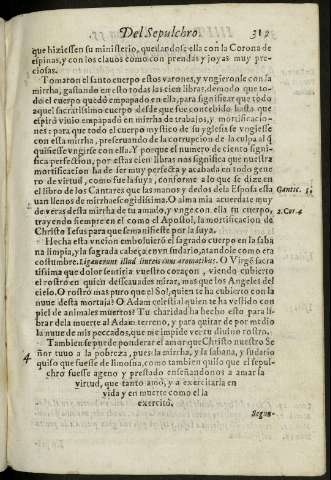 Del Sepulchro. 319
que hiziessen su ministerio, quedandose ella con la Corona de
espinas, y con los clauos como con prendas y joyas muy pre-
ciosas.
Tomaron el santo cuerpo estos varones, y vngieronle con la
mirrha, gastando en esto todas las cien libras, demodo que to-
do el cuerpo quedó empapado en ella, para significar que todo
aquel sacratissimo cuerpo desde que fue concebido hasta que
espiró viuio empapado en mirrha de trabajos, y mortificacio-
nes: para que todo el cuerpo mystico de su yglesia se vngiesse
con esta mirrha, preseruandose de la corrupcion de la culpa al q̃
quisiesse vngirse con ella. Y porque el numero de ciento signi-
fica perfection, por estas cien libras nos significa que nuestra
mortificacion ha de ser muy perfecta y acabada en todo gene
ro de virtud, como fue la suya, conforme a lo que se dize en
el libro de los Cantares que las manos y dedos dela Esposa esta
uan llenos de mirrha escogidissima. O alma mia acuerdate muy
Cantic. 5.
de veras desta mirrha de tu amado, y vnge con ella tu cuerpo,
2. Cor. 4
trayendo siempre en el como el Apostol, la mortificacion de
Christo Iesus para que se manifieste por la suya.
Hecha esta vncion emboluieró el sagrado cuerpo en la saba
na limpia, y la sagrada cabeça en vn sudario, atandole como era
costumbre. Ligauerunt illud linteis cum aromatibus. O Virgẽ sacra
tissima que dolor sentiria vuestro coraçon, viendo cubierto
el rostro en quien desseauades mirar, mas que los Angeles del
cielo. O rostro mas puro que el Sol, quien te ha cubierto con la
nuue desta mortaja? O Adam celestial quien te ha vestido con
piel de animales muertos? Tu charidad ha hecho esto para li-
brar dela muerte al Adam terreno, y para quitar de por medio
la nuue de mis peccados, que me impide ver tu diuino rostro.
Tambien se puede ponderar el amor que Christo nuestro Se
4. ñor tuuo a la pobreza, pues la mirrha, y la sabana, y sudario
quiso que fuesse de limosna, como tambien quiso que el sepul-
chro fuesse ageno y prestado enseñandonos a amar la
virtud, que tanto amó, y a exercitarla en
vida y en muerte como el la
exercitó.
Segun-